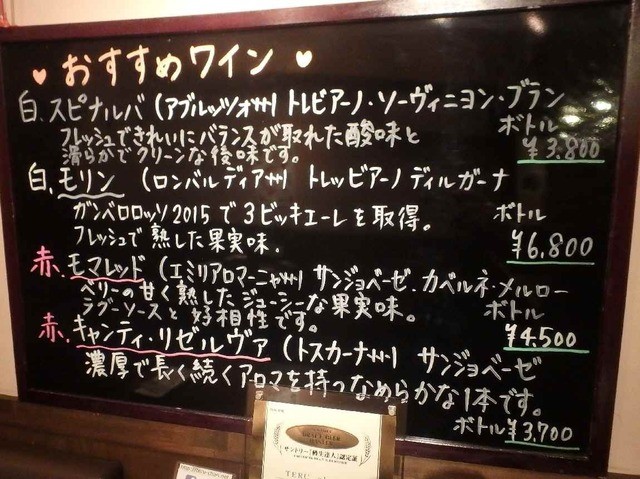 ♥ おすすめワイン ♥
白、スピナルバ (アブルッツォ州) トレビアーノ・ソーヴィニヨン・ブラン
フレッシュできれいにバランスが取れた酸味と
滑らかでクリーンな後味です。
ボトル
¥3,800
白、モリン (ロンバルディア州) トレッビアーノ ディルガーナ
ガンベロロッソ2015で3ビッキエーレを取得。
フレッシュで熟した果実味.
ボトル
¥6,800
赤.モマレッド (エミリアロマーニャ州) サンジョベーゼ.カベルネ・メルロー
ベリーの甘く熟したジューシーな果実味。
ラグーソースと好相性です。
ボトル
¥4,500
赤.キャンティ・リゼルヴァ (トスカーナ州) サンジョベーゼ
濃厚で長く続くアロマを持つなめらかな1本です。
ボトル ¥3,700
サントリー「樽生達人」認定証